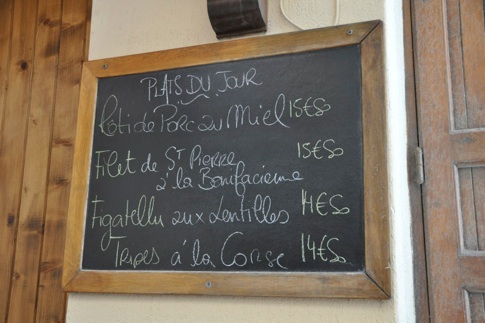 PLATS DU JOUR
Rôti de Porc au Miel 15€50
Filet de St PIERRE 15€50
à la Bonifacienne
Figatellu aux Lentilles 14€50
TRIPES à la Corse 14€50